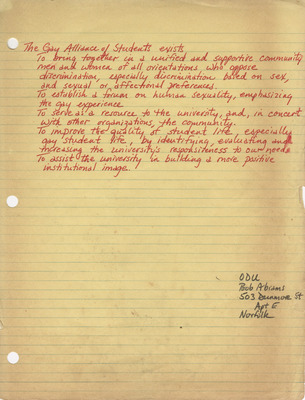 The Gay Alliance of Students exists
To bring together in a unified and supportive community
men and women of all orientations who oppose
discrimination, especially discrimination based on sex,
and sexual or affectional preferences.
To establish a forum on human sexuality, emphasizing
the gay experience.
To serve as a resource to the university, and, in concert
with other organizations, the community.
To improve the quality of student life, especially
gay student life, by identifying, evaluating and
increasing the university's responsiteness to our needs
To assist the university in building a more positive
institutional image.
ODU
Bob Abrams
503 St
Apt
Norfolk